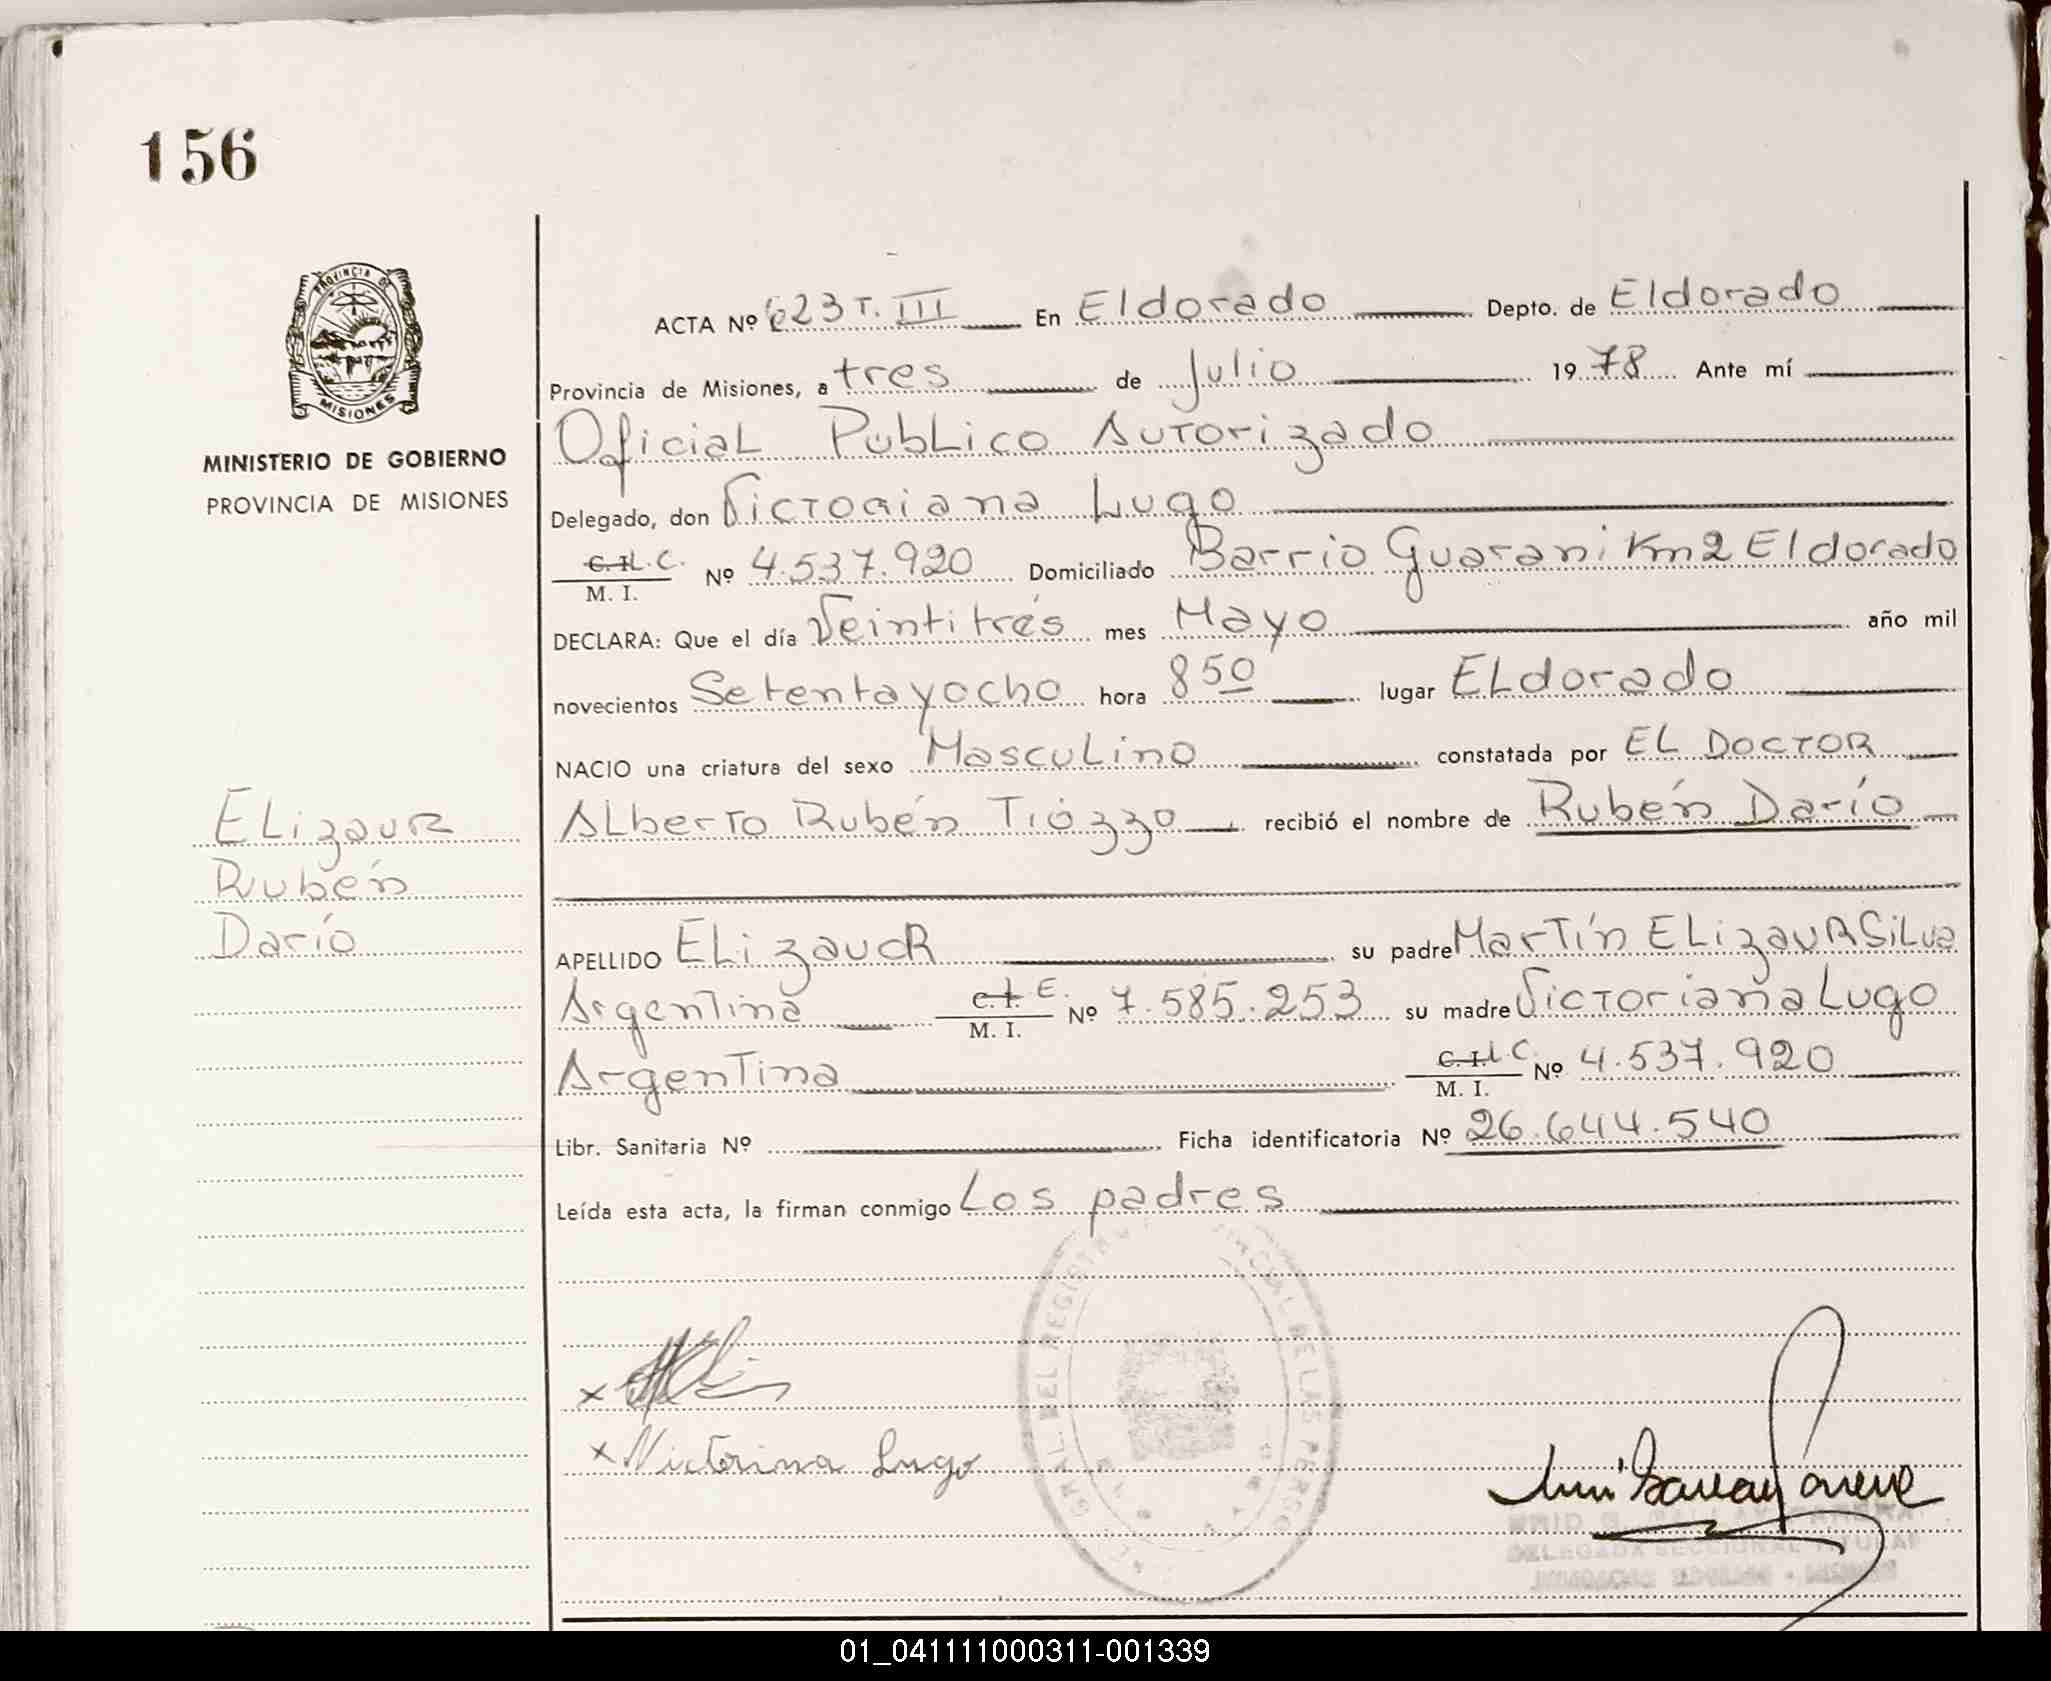 156
PROVINCIA DE
MISIONES
MINISTERIO DE GOBIERNO
PROVINCIA DE MISIONES
ACTA Nº 623 T. III En Eldorado Depto. de Eldorado
Provincia de Misiones, a tres de Julio 1978 Ante mí
Oficial Publico Autorizado
Delegado, don Victoriana Lugo
C.I. L.C. M. I. Nº 4.537.920 Domiciliado Barrio Guarani Km 2 Eldorado
DECLARA: Que el día Veintitrés mes Mayo año mil
novecientos Setentayocho hora 8 50 lugar ELdorado
NACIO una criatura del sexo Masculino constatada por EL DOCTOR
Alberto Rubén Tiózzo recibió el nombre de Rubén Darío
Elizaur
Rubén
Darío
APELLIDO ELizaur su padre Martín ELizaur Silva
Argentina C.I. L.E. M. I. Nº 7.585.253 su madre Victoriana Lugo
Argentina C.I. L.C. M. I. Nº 4.537.920
Libr. Sanitaria Nº Ficha identificatoria Nº 26.644.540
Leída esta acta, la firman conmigo Los padres
GRAL. DEL REGISTRO DE LAS PERSO
x
x Victorina Lugo
DELEGADA SECCIONAL TITULAR
01_041111000311-001339